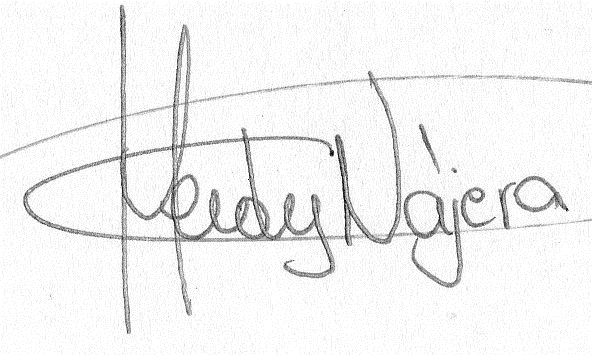 Heidy Nájera